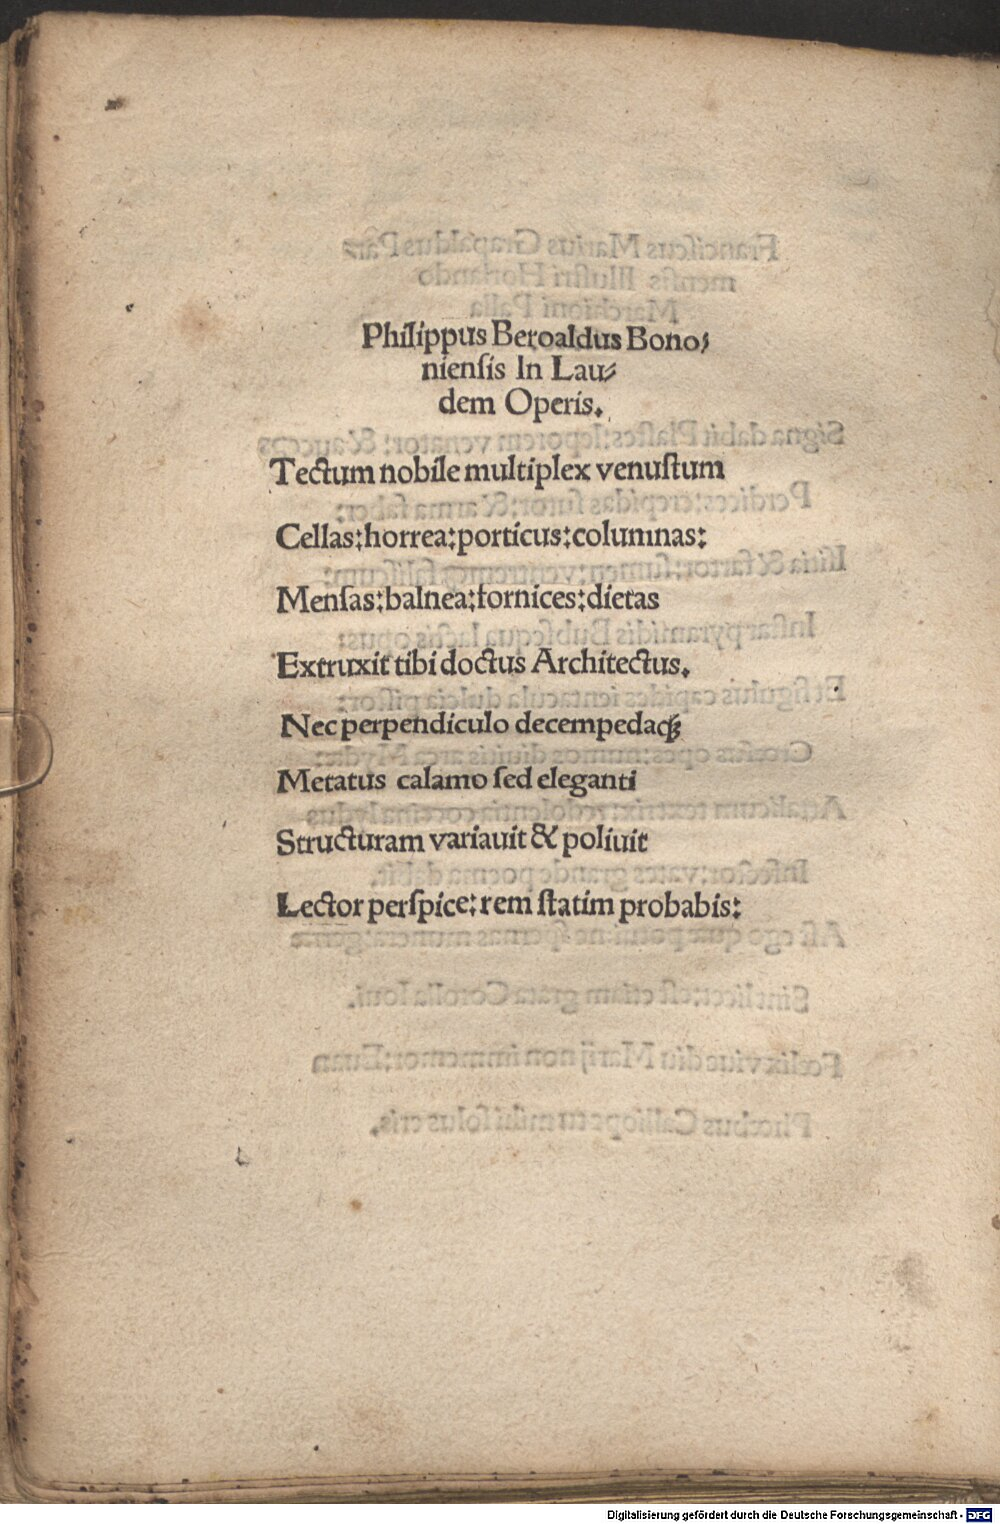 Philippus Beroaldus Bono⸗
nienſis In Lau⸗
dem Operis.
Tectum nobile multiplex venuſtum
Cellas:horrea:porticus:columnas:
Menſas:balnea:fornices:dietas
Extruxit tibi doctus Architectus.
Nec perpendiculo decempedaqꝫ
Metatus calamo ſed eleganti
Structuram variauit & poliuit
Lector perſpice:rem ſtatim probabis:
Digitalisierung gefördert durch die Deutsche Forschungsgemeinschaft - DFG